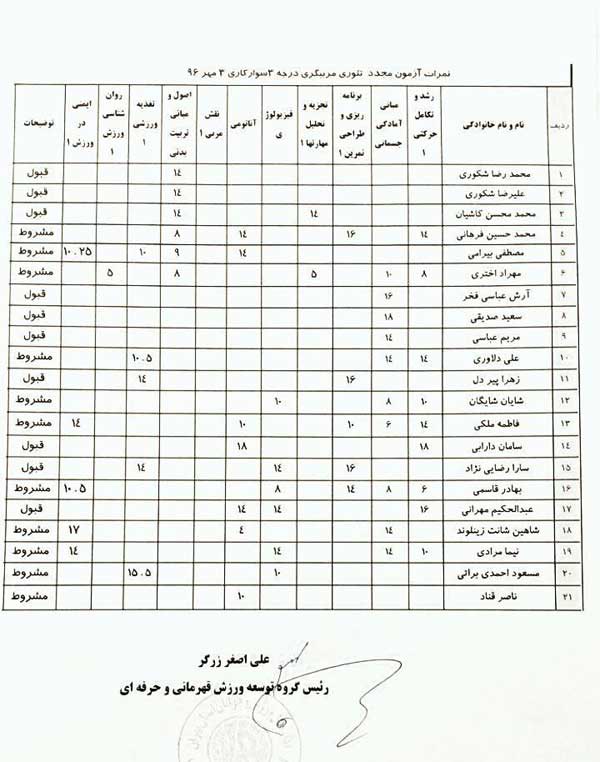 نمرات آزمون مجدد تئوری مربیگری درجه ۳ سوارکاری ۳ مهر ۹۶
ردیف نام و نام خانوادگی رشد و تکامل حرکتی ۱ مبانی آمادگی جسمانی برنامه ریزی و طراحی تمرین ۱ تجزیه و تحلیل مهارتها ۱ فیزیولوژی آناتومی نقش مربی ۱ اصول و مبانی تربیت بدنی تغذیه ورزشی ۱ روان شناسی ورزش ۱ ایمنی در ورزش ۱ توضیحات
۱ محمد رضا شکوری ۱۴ قبول
۲ علیرضا شکوری ۱۴ قبول
۳ محمد محسن کاشیان ۱۴ ۱۴ قبول
۴ محمد حسین فرهانی ۱۴ ۱۶ ۱۴ ۸ مشروط
۵ مصطفی بیرامی ۱۴ ۹ ۱۰ ۱۰.۲۵ مشروط
۶ مهراد اختری ۸ ۱۰ ۵ ۸ ۵ مشروط
۷ آرش عباسی فخر ۱۶ قبول
۸ سعید صدیقی ۱۸ قبول
۹ مریم عباسی ۱۴ قبول
۱۰ علی دلاوری ۱۴ ۱۴ ۱۰.۵ مشروط
۱۱ زهرا پیر دل ۱۶ ۱۴ قبول
۱۲ شایان شایگان ۱۰ ۸ ۱۰ مشروط
۱۳ فاطمه ملکی ۱۴ ۶ ۱۰ ۱۰ ۱۴ مشروط
۱۴ سامان دارابی ۱۸ ۱۸ قبول
۱۵ سارا رضایی نژاد ۱۶ ۱۴ ۱۴ قبول
۱۶ بهادر قاسمی ۶ ۸ ۱۴ ۸ ۱۰.۵ مشروط
۱۷ عبدالحکیم مهرانی ۱۶ ۱۴ ۱۴ قبول
۱۸ شاهین شانت زینلوند ۱۴ ۴ ۱۷ مشروط
۱۹ نیما مرادی ۱۰ ۱۴ ۱۴ ۱۴ مشروط
۲۰ مسعود احمدی براتی ۱۰ ۱۵.۵ مشروط
۲۱ ناصر قناد ۱۰ مشروط
علی اصغر زرگر
رئیس گروه توسعه ورزش قهرمانی و حرفه ای